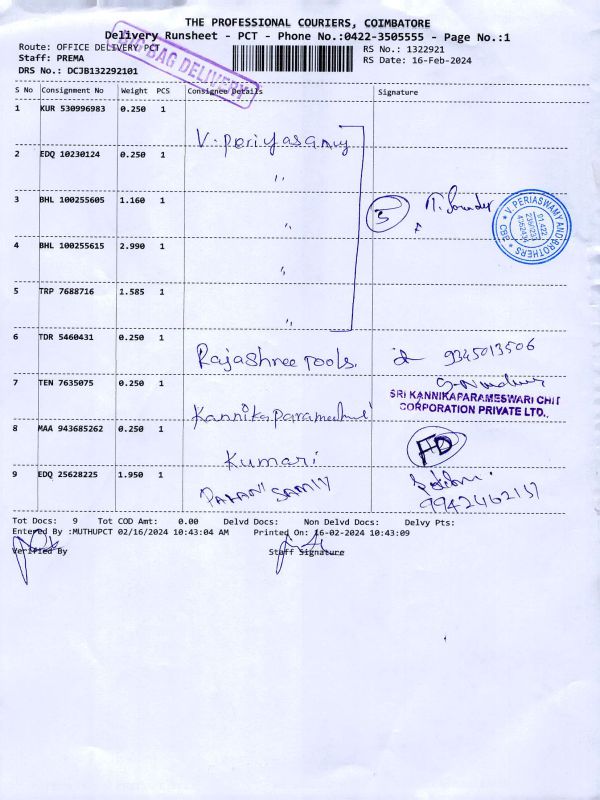 THE PROFESSIONAL COURIERS, COIMBATORE
Delivery Runsheet - PCT - Phone No.:0422-3505555 - Page No.:1
Route: OFFICE DELIVERY PCT
RS No.: 1322921
Staff: PREMA
RS Date: 16-Feb-2024
DRS No.: DCJB132292101
BAG DELIVERY
S No Consignment No Weight PCS Consignee Details Signature
1 KUR 530996983 0.250 1
V. Periyasamy
2 EDQ 10230124 0.250 1
"
3 BHL 100255605 1.160 1
"
5
V. PERIASWAMY AND BROTHERS
CBE
4 BHL 100255615 2.990 1
"
5 TRP 7688716 1.585 1
"
6 TDR 5460431 0.250 1
Rajashree Tools. 9345013506
7 TEN 7635075 0.250 1
SRI KANNIKAPARAMESWARI CHIT
CORPORATION PRIVATE LTD.,
8 MAA 943685262 0.250 1
Kumari
9 EDQ 25628225 1.950 1
PALANI SAMIY
9942462137
Tot Docs: 9 Tot COD Amt: 0.00 Delvd Docs: Non Delvd Docs: Delvy Pts:
Entered By :MUTHUPCT 02/16/2024 10:43:04 AM Printed On: 16-02-2024 10:43:09
Verified By Staff Signature